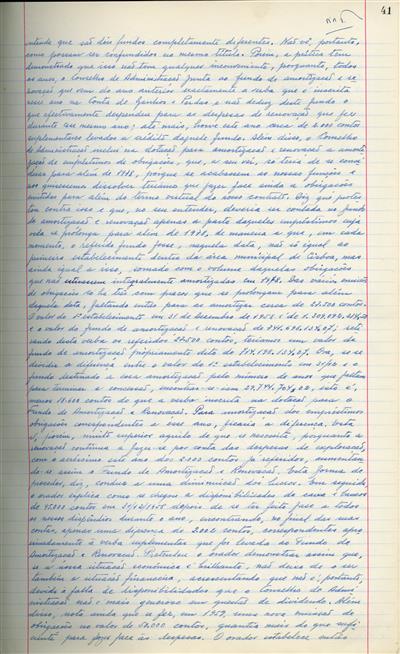 41
entende que são dois fundos completamente diferentes. Não vê, portanto,
como possam ser confundidos no mesmo título. Porém, a prática tem
demonstrado que isso não tem qualquer inconveniente, porquanto, todos
os anos, o Conselho de Administração junta ao fundo de amortização e re-
novação que vem do ano anterior exactamente a verba que é inscrita
nesse ano na conta de Ganhos e Perdas e não deduz deste fundo o
que efectivamente despendeu para as despesas de renovação que fez
durante esse mesmo ano; até mais, houve este ano cerca de 2.000 contos
suplementares levados a crédito deste fundo. Além disso, o Conselho
de Administração inclui na dotação para amortização e renovação a amorti-
zação de empréstimos de obrigações, que, a seu ver, só teria de se consi-
derar para além de 1978, porque se acabassem as nossas funções e
nos quisessemos dissolver teríamos que fazer face ainda a obrigações
emitidas para além do termo virtual do nosso contrato. Diz que protes-
ta contra isso e que, no seu entender, deveria ser contada no fundo
de amortização e renovação apenas a parte daqueles empréstimos cuja
vida se prolonga para além de 1978, de maneira a que, em cada
momento, o referido fundo fosse, naquela data, não só igual ao
primeiro estabelecimento dentro da área municipal de Lisboa, mas
ainda igual a isso, somado com o volume daquelas obrigações
que não estivessem integralmente amortizadas em 1978. Das várias emissões
de obrigações só há três com prazos que se prolongam para além
daquela data, faltando então para se amortizar cerca de 22.500 contos.
O valor do 1º estabelecimento em 31 de Dezembro de 1958 é de
e o valor do fundo de amortização e renovação de
rando desta verba os referidos 22.500 contos, teríamos um valor do
fundo de amortização própriamente dito de Ora, se se
dividir a diferença entre o valor do 1º estabelecimento em 31/12 e o
fundo destinado a essa amortização pelo número de anos que faltam
para terminar a concessão, encontra-se isto é,
menos 18.600 contos do que a verba inscrita na dotação para o
Fundo de Amortização e Renovação. Para amortização dos empréstimos
obrigações correspondentes a esse ano, ficaria a diferença. Verba
é, porém, muito superior àquilo de que se necessita, porquanto a
renovação continua a fazer-se por conta das despesas de exploração,
com o acréscimo este ano dos 2.000 contos já referidos, aumentan-
do-se assim o Fundo de Amortização e Renovação. Esta forma de
proceder, diz, conduz a uma diminuição dos lucros. Em seguida,
o orador explica como se chegou à disponibilidade de caixa e bancos
de contos em 31/12/1958 depois de se ter feito face a todos
os nossos dispêndios durante o ano, encontrando, no final das suas
contas, apenas uma diferença de 2.005 contos, correspondentes apro-
ximadamente à verba suplementar que foi levada ao Fundo de
Amortização e Renovação. Pretendeu o orador demonstrar assim que,
se a nossa situação económica é brilhante, não deixa de o ser
também a situação financeira, acrescentando que não é, portanto,
devido à falta de disponibilidades que o Conselho de Admi-
nistração não é mais generoso em questões de dividendo. Além
disso, nota ainda que se fez, em 1959, uma nova emissão de
obrigações no valor de 50.000 contos, quantia mais do que sufi-
ciente para fazer face às despesas. O orador estabelece então